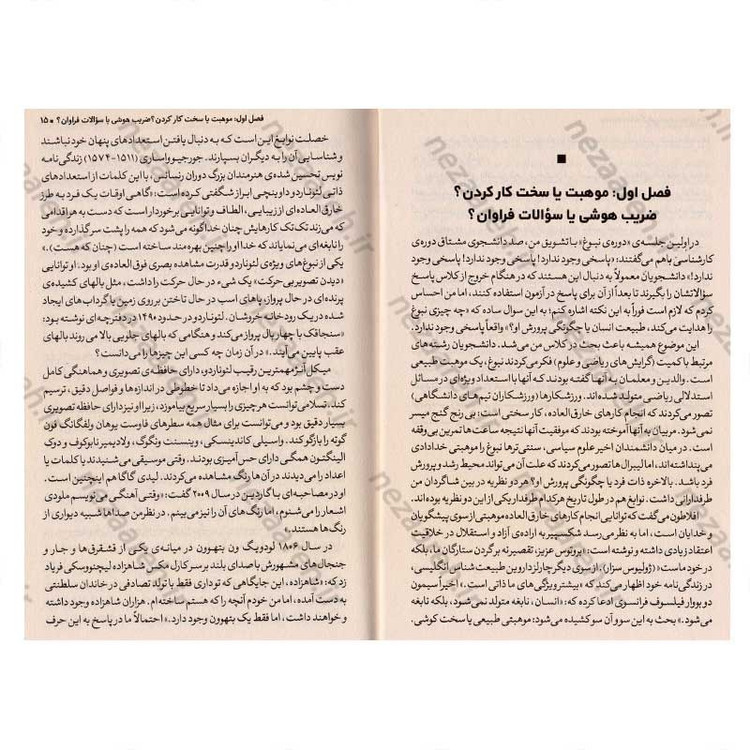 فصل اول: موهبت یا سخت کار کردن؟
ضریب هوشی یا سؤالات فراوان؟
در اولین جلسه‌ی «دوره‌ی نبوغ» با تشویق من، صد دانشجوی مشتاق دوره‌ی
کارشناسی باهم می‌گفتند: «پاسخی وجود ندارد! پاسخی وجود ندارد! پاسخی وجود
ندارد!» دانشجویان معمولاً به دنبال این هستند که در هنگام خروج از کلاس پاسخ
سؤالاتشان را بگیرند تا بعداً از آن برای پاسخ در آزمون استفاده کنند، اما من احساس
کردم که لازم است فوراً به این نکته اشاره کنم؛ به این سوال ساده که «چه چیزی نبوغ
را هدایت می‌کند، طبیعت انسان یا چگونگی پرورش او؟» واقعاً پاسخی وجود ندارد.
این موضوع همیشه باعث بحث در کلاس من می‌شد. دانشجویان رشته‌های
مرتبط با کمیت (گرایش‌های ریاضی و علوم) فکر می‌کردند نبوغ، یک موهبت طبیعی
است. والدین و معلمان به آنها گفته بودند که آنها با استعداد ویژه‌ای در مسائل
استدلالی ریاضی متولد شده‌اند. ورزشکارها (ورزشکاران تیم‌های دانشگاهی)
تصور می‌کردند که انجام کارهای خارق العاده، کار سختی است؛ بی رنج گنج میسر
نمی‌شود. مربیان به آنها آموخته بودند که موفقیت آنها نتیجه ساعت‌ها تمرین بی‌وقفه
است. در میان دانشمندان اخیر علوم سیاسی، سنتی‌ترها نبوغ را موهبتی خدادادی
می‌پنداشته‌اند، اما لیبرال‌ها تصور می‌کردند که علت آن می‌تواند محیط رشد و پرورش
فرد باشد. بالاخره ذات فرد یا چگونگی پرورش او؟ هر دو نظریه در بین شاگردان من
طرفدارانی داشت. نوابغ هم در طول تاریخ هرکدام طرفدار یکی از این دو نظریه بوده‌اند.
افلاطون می‌گفت که توانایی انجام کارهای خارق العاده موهبتی از سوی پیشگویان
و خدایان است، اما به نظر می‌رسد شکسپیر به اراده‌ی آزاد و استقلال در خلاقیت
اعتقاد زیادی داشته و نوشته است: «بروتوس عزیز، تقصیر نه بر گردن ستارگان ما، بلکه
در خود ماست» (ژولیوس سزار). از سوی دیگر چارلز داروین طبیعت‌شناس انگلیسی،
در زندگی‌نامه خود اظهار می‌کند که «بیشتر ویژگی‌های ما ذاتی است.» اخیراً سیمون
دو بووار فیلسوف فرانسوی ادعا کرده که: «انسان، نابغه متولد نمی‌شود، بلکه تابغه
می‌شود.» بحث به این سو و آن سو کشیده می‌شود: موهبتی طبیعی یا سخت کوشی.
فصل اول: موهبت یا سخت کار کردن؟ ضریب هوشی یا سؤالات فراوان؟ ● ۱۵
خصلت نوابغ این است که به دنبال یافتن استعدادهای پنهان خود نباشند
و شناسایی آن را به دیگران بسپارند. جورجیو وازاری (۱۵۱۱-۱۵۷۴) زندگی‌نامه
نویس تحسین شده‌ی هنرمندان بزرگ دوران رنسانس، با این کلمات از استعدادهای
ذاتی لئوناردو داوینچی ابراز شگفتی کرده است: «گاهی اوقات یک فرد به طرز
خارق العاده‌ای از زیبایی، الطاف و توانایی برخوردار است که دست به هر اقدامی
که می‌زند تک تک کارهایش چنان خداگونه می‌شود که همه را پشت سر گذارده و خود
را نابغه‌ای می‌نمایاند که خدا او را چنین بهره‌مند ساخته است (چنان که هست).»
یکی از نبوغ‌های ویژه‌ی لئوناردو قدرت مشاهده بصری فوق العاده‌ی او بود. او توانایی
«دیدن تصویر بی‌حرکت» یک شیء در حال حرکت را داشت، مثل بالهای کشیده‌ی
پرنده‌ای در حال پرواز، پاهای اسب در حال تاختن بر روی زمین یا گرداب‌های ایجاد
شده در یک رودخانه خروشان. لئوناردو در حدود ۱۴۹۰ در دفترچه‌ای نوشته بود:
«سنجاقک با چهار بال پرواز می‌کند و هنگامی که بالهای جلویی بالا می‌روند بالهای
عقب پایین می‌آیند.» در آن زمان چه کسی این چیزها را می‌دانست؟
میکل آنژ مهمترین رقیب لئوناردو، دارای حافظه‌ی تصویری و هماهنگی کامل
دست و چشم بود که به او اجازه می‌داد تا خطوطی در اندازه‌ها و فواصل دقیق، ترسیم
کند. تسلا می‌توانست هر چیزی را بسیار سریع بیاموزد، زیرا او نیز دارای حافظه تصویری
بسیار دقیق بود و می‌توانست برای مثال همه سطرهای فاوست یوهان ولفگانگ فون
گوته را بازگو کند. واسیلی کاندینسکی، وینسنت ونگوگ، ولادیمیر نابوکوف و دوک
الینگتون همگی دارای حس‌آمیزی بودند. وقتی موسیقی می‌شنیدند یا کلمات یا
اعداد را می‌دیدند در آن‌ها رنگ مشاهده می‌کردند. لیدی گاگا هم اینچنین است.
او در مصاحبه‌ای با گاردین در سال ۲۰۰۹ گفت: «وقتی آهنگی می‌نویسم ملودی
اشعار را می‌شنوم، اما رنگ‌های آن را نیز می‌بینم. در نظر من صداها شبیه دیواری از
رنگ‌ها هستند.»
در سال ۱۸۰۶ لودویگ ون بتهوون در میانه‌ی یکی از قشقرق‌ها و جار و
جنجال‌های مشهورش با صدای بلند بر سر کارل مکس شاهزاده لیچنوفسکی فریاد
زد که: «شاهزاده، این جایگاهی که تو داری فقط با تولد تصادفی در خاندان سلطنتی
به دست آمده، اما من خودم آنچه را که هستم ساخته‌ام. هزاران شاهزاده وجود داشته
و خواهند داشت، اما فقط یک بتهوون وجود دارد.» احتمالاً ما در پاسخ به این حرف